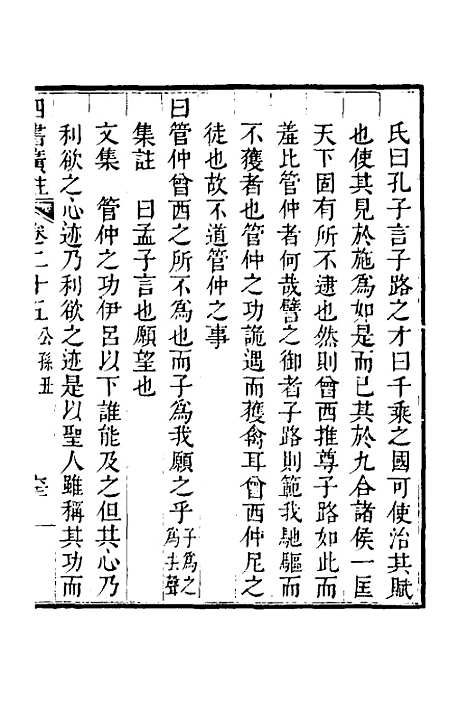 氏曰孔子言子路之才曰千乘之國可使治其賦
也使其見於施為如是而已其於九合諸侯一匡
天下固有所不逮也然則曾西推尊子路如此而
羞比管仲者何哉譬之御者子路則範我馳驅而
不獲者也管仲之功詭遇而獲禽耳曾西仲尼之
徒也故不道管仲之事
曰管仲曾西之所不為也而子為我願之乎子為之為去聲
集註　曰孟子言也願望也
文集　管仲之功伊呂以下誰能及之但其心乃
利欲之心迹乃利欲之迹是以聖人雖稱其功而
四書廣註　卷二十五　公孫丑